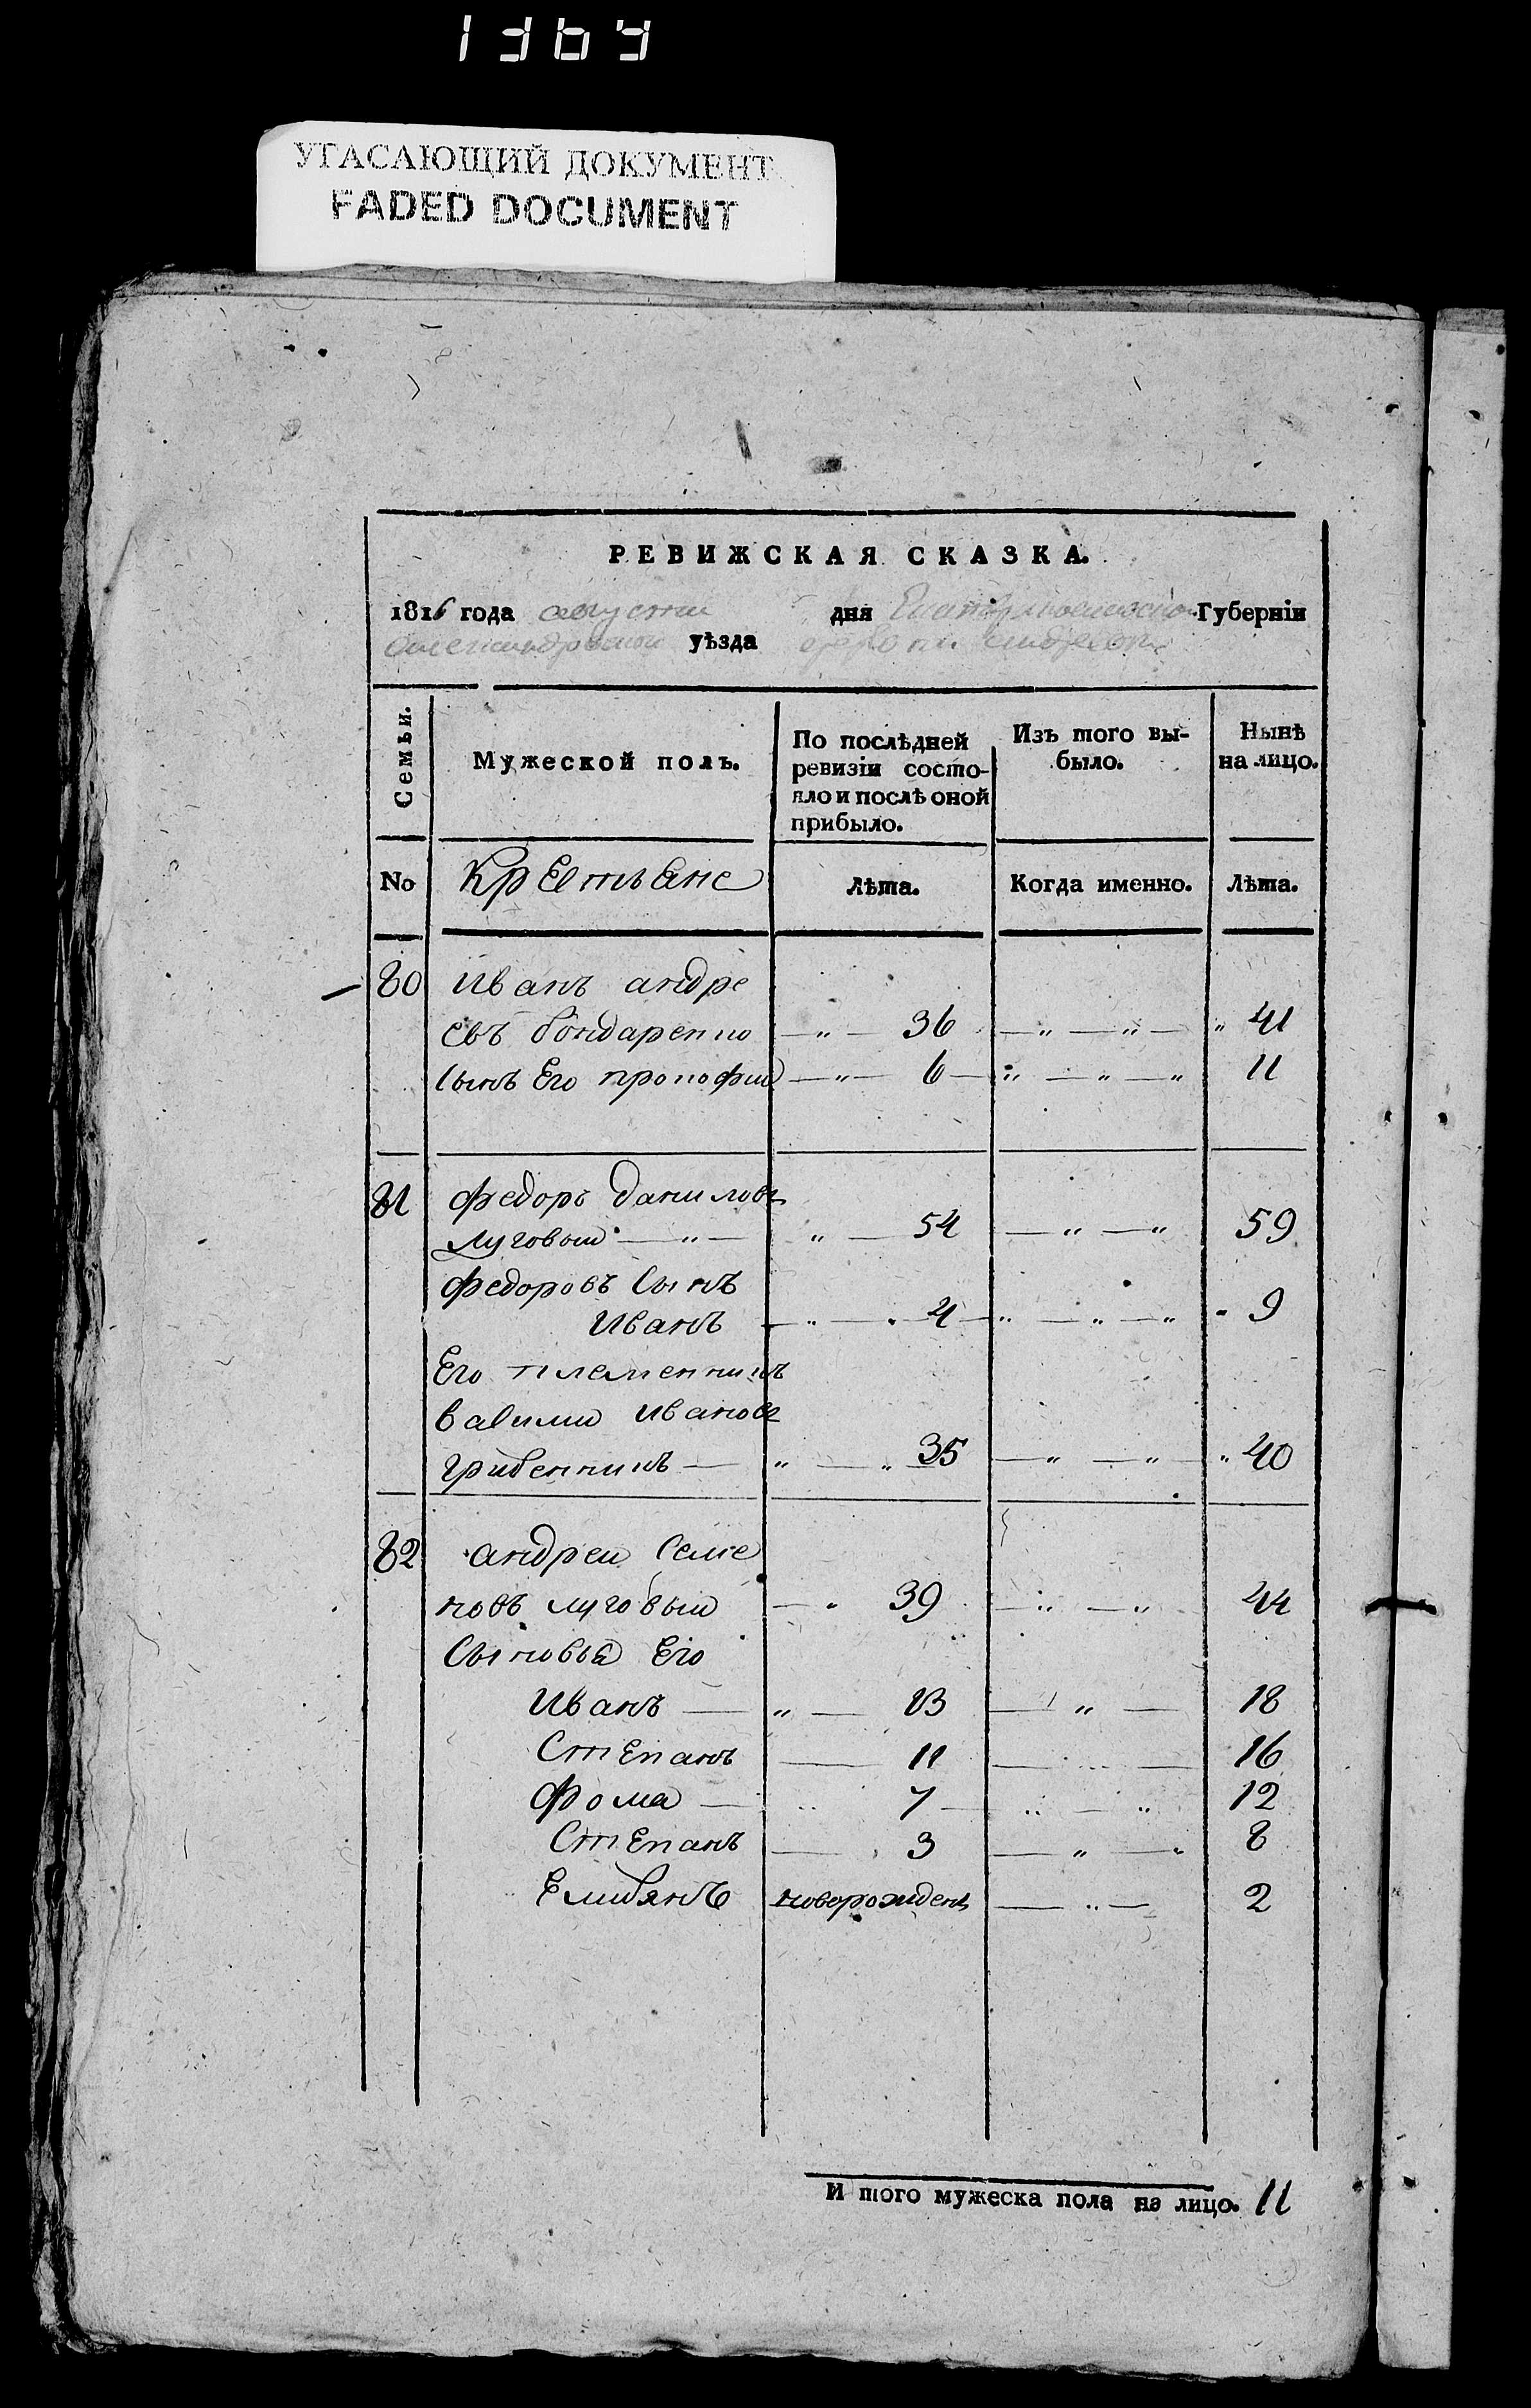 УГАСАЮЩИЙ ДОКУМЕНТ
FADED DOCUMENT
РЕВИЖСКАЯ СКАЗКА.
1816 года августа дня Губерніи
уѣзда
Семьи.
Мужеской полъ.
По послѣдней ревизіи состо-
яло и послѣ оной прибыло.
Изъ того вы-
было.
Нынѣ на лицо.
No Крестьене Лѣта. Когда именно. Лѣта.
80 Иванъ андре
евъ бондаренко 36 41
сынъ Его прокофий 6 11
81 федоръ даниловъ
луговый 54 59
федоровъ Сынъ
Иванъ 4 9
Его племенникъ
василий Ивановъ
грибенникъ 35 40
82 андрей Семе
новъ луговый 39 44
Сыновья Его
Иванъ 13 18
Степанъ 11 16
Фома 7 12
Степанъ 3 8
новорожденъ 2
И того мужеска пола на лицо. 11